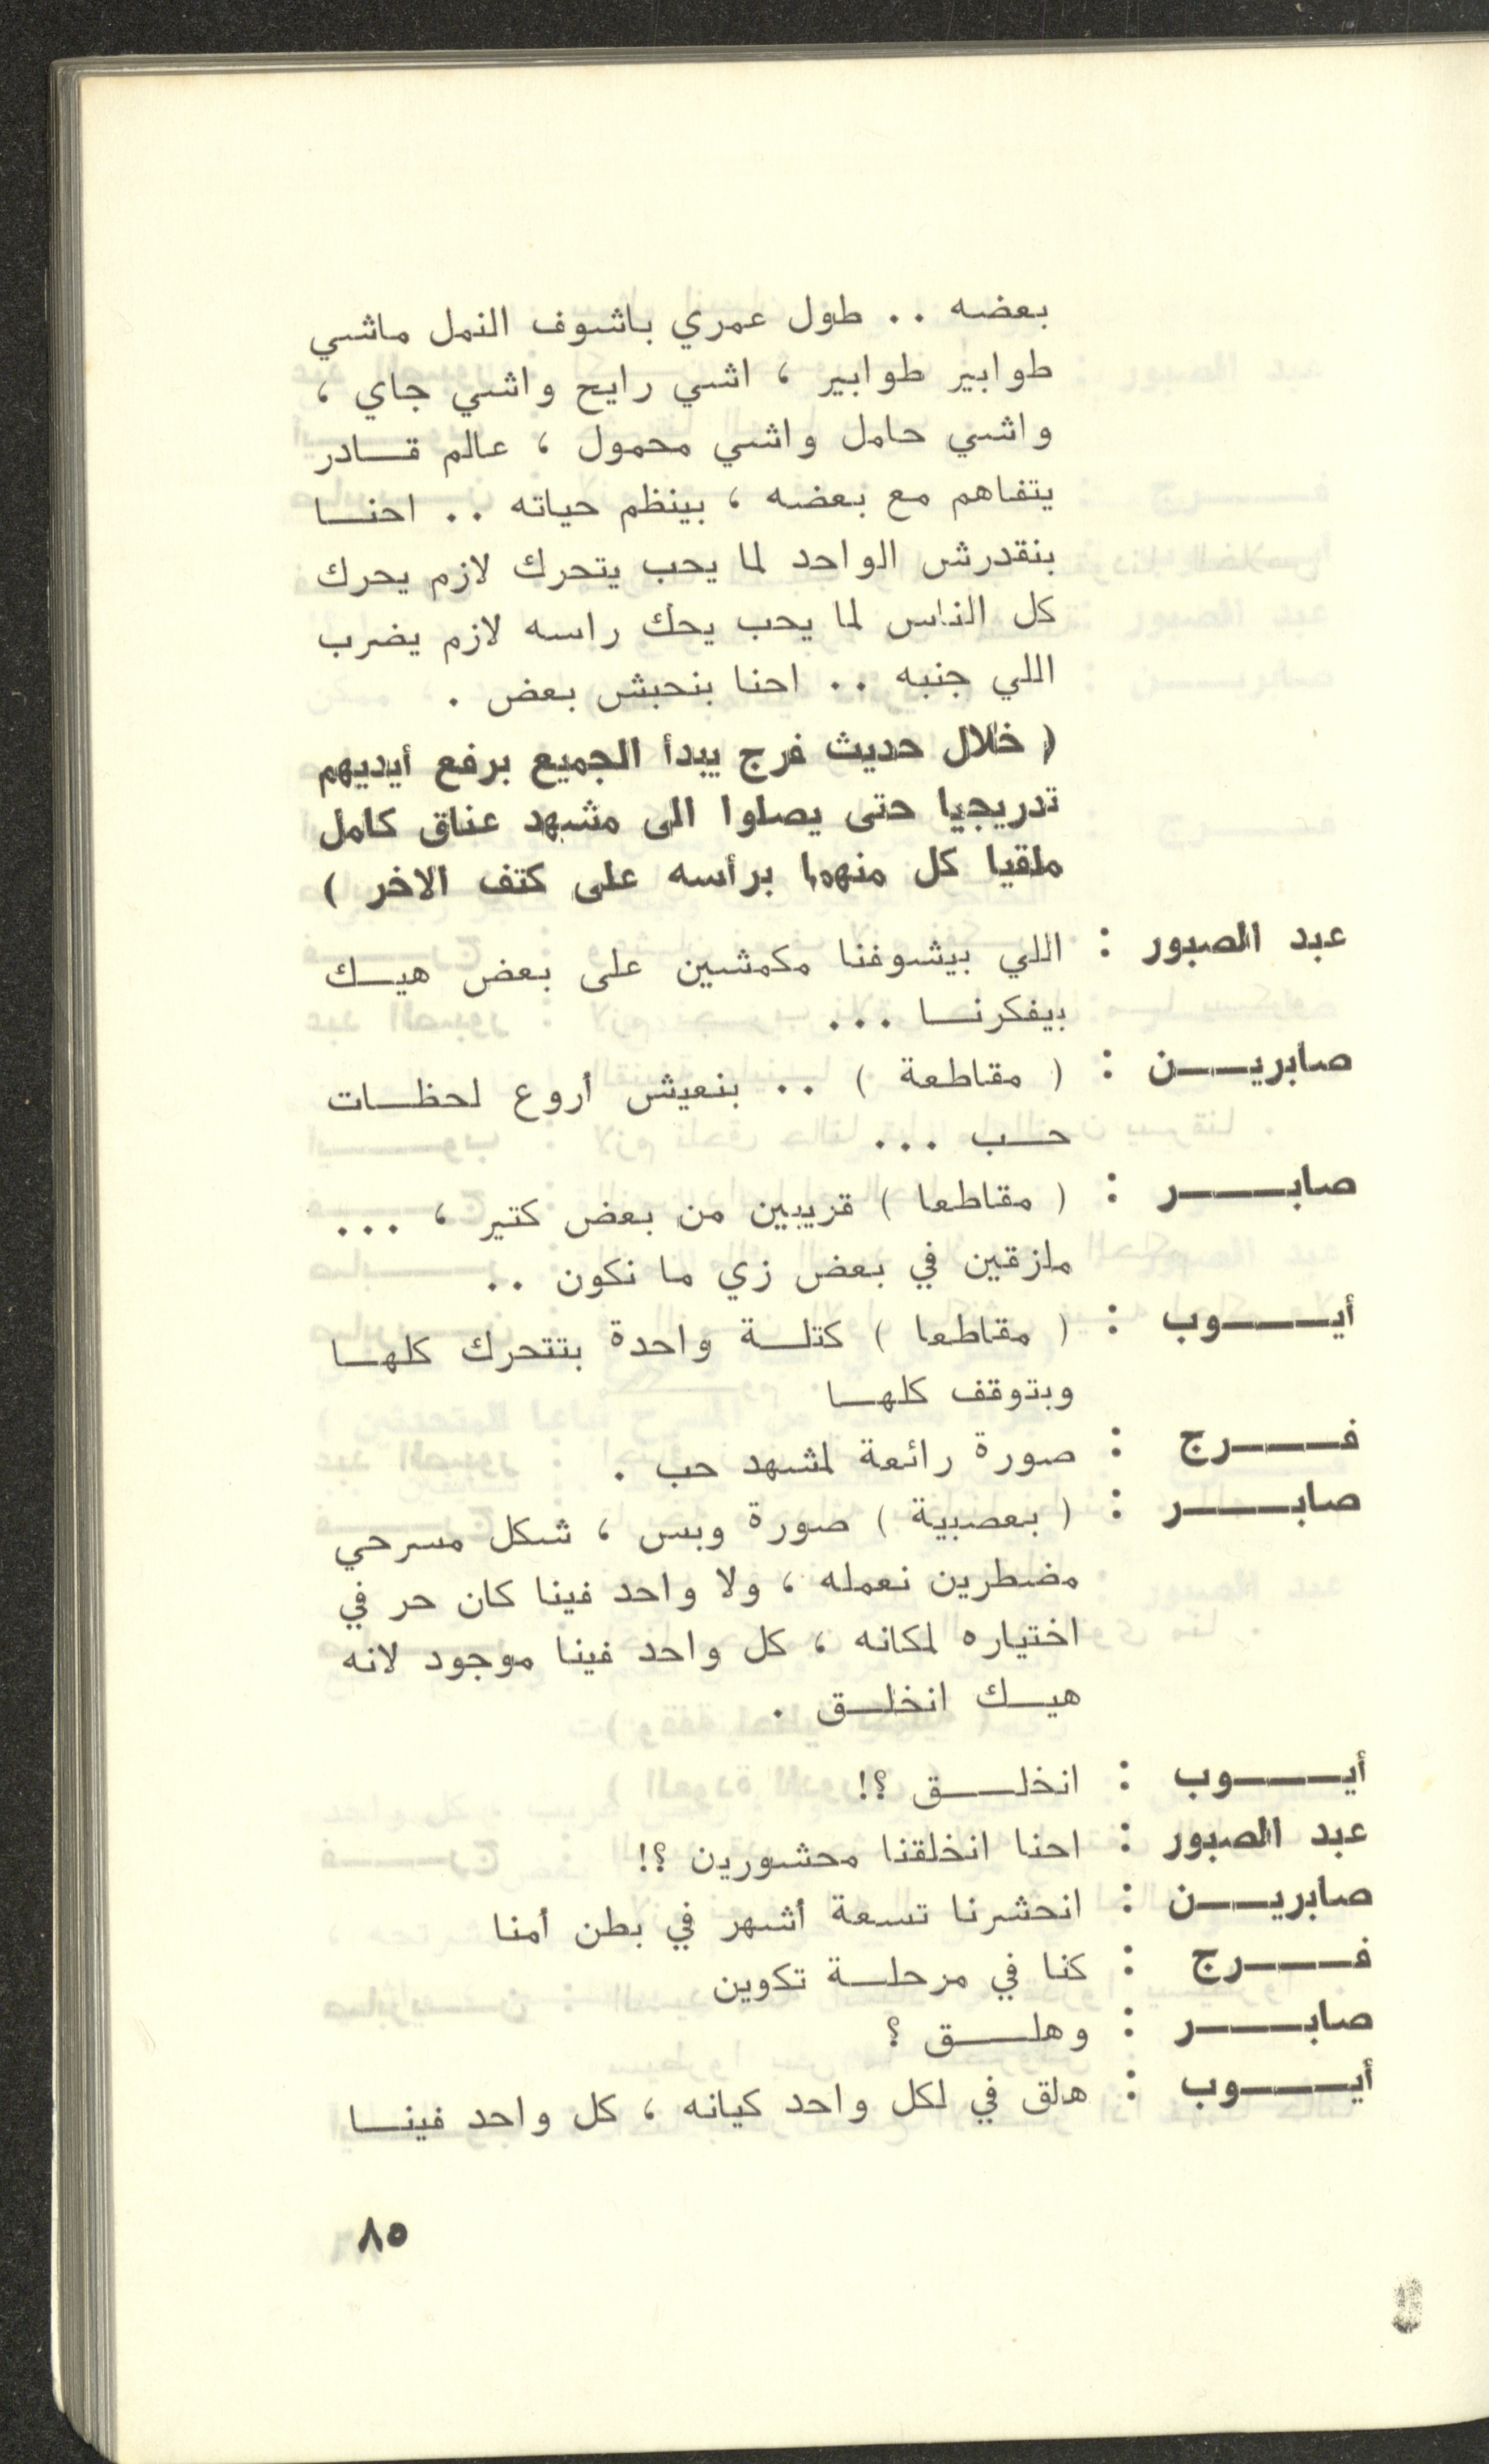 بعضه .. طول عمري باشوف النمل ماشي
طوابير طوابير ، اشي رايح واشي جاي ،
واشي حامل واشي محمول ، عالم قـــادر
يتفاهم مع بعضه ، بينظم حياته .. احنـــا
بنقدرش الواحد لما يحب يتحرك لازم يحرك
كل الناس لما يحب يحك راسه لازم يضرب
اللي جنبه .. احنا بنحبش بعض .
( خلال حديث فرج يبدأ الجميع برفع أيديهم
تدريجيا حتى يصلوا الى مشهد عناق كامل
ملقيا كل منهما برأسه على كتف الاخر )
عبد الصبور : اللي بيشوفنا مكمشين على بعض هيـــك
بيفكرنـــا ...
صابريـــــن : ( مقاطعة ) .. بنعيش أروع لحظـــات
حـــب ...
صابـــــــر : ( مقاطعا ) قريبين من بعض كتير ، ...
ملزقين في بعض زي ما نكون ..
أيـــــــوب : ( مقاطعا ) كتلـــة واحدة بتتحرك كلهـــا
وبتوقف كلهـــا
فـــــــرج : صورة رائعة لمشهد حب .
صابـــــــر : ( بعصبية ) صورة وبس ، شكل مسرحي
مضطرين نعمله ، ولا واحد فينا كان حر في
اختياره لمكانه ، كل واحد فينا موجود لانه
هيـــك انخلـــق .
أيـــــــوب : انخلـــــق ؟!
عبد الصبور : احنا انخلقنا محشورين ؟!
صابريـــــن : انحشرنا تسعة أشهر في بطن أمنا
فـــــــرج : كنا في مرحلـــة تكوين
صابـــــــر : وهلـــــق ؟
أيـــــــوب : هلق في لكل واحد كيانه ، كل واحد فينـــا
٨٥